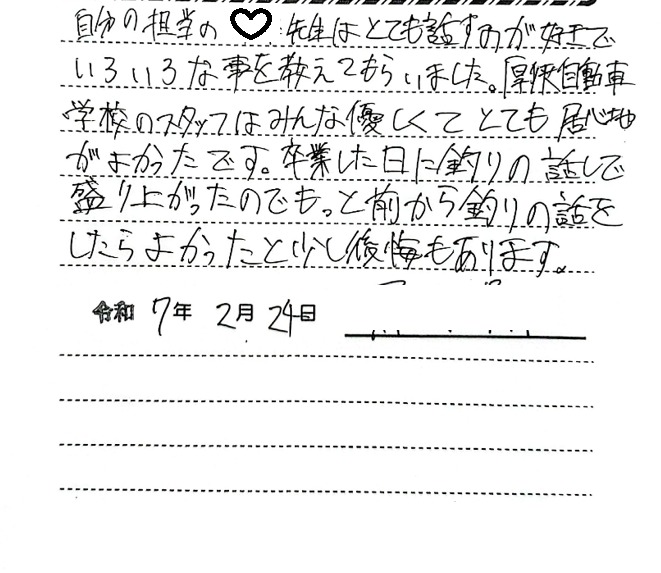 自分の担当の ♡ 先生はとても話すのが好きで
いろいろな事を教えてもらいました。厚狭自動車
学校のスタッフはみんな優しくてとても居心地
がよかったです。卒業した日に釣りの話しで
盛り上がったのでもっと前から釣りの話を
したらよかったと少し後悔もあります。
令和 7年 2月 24日